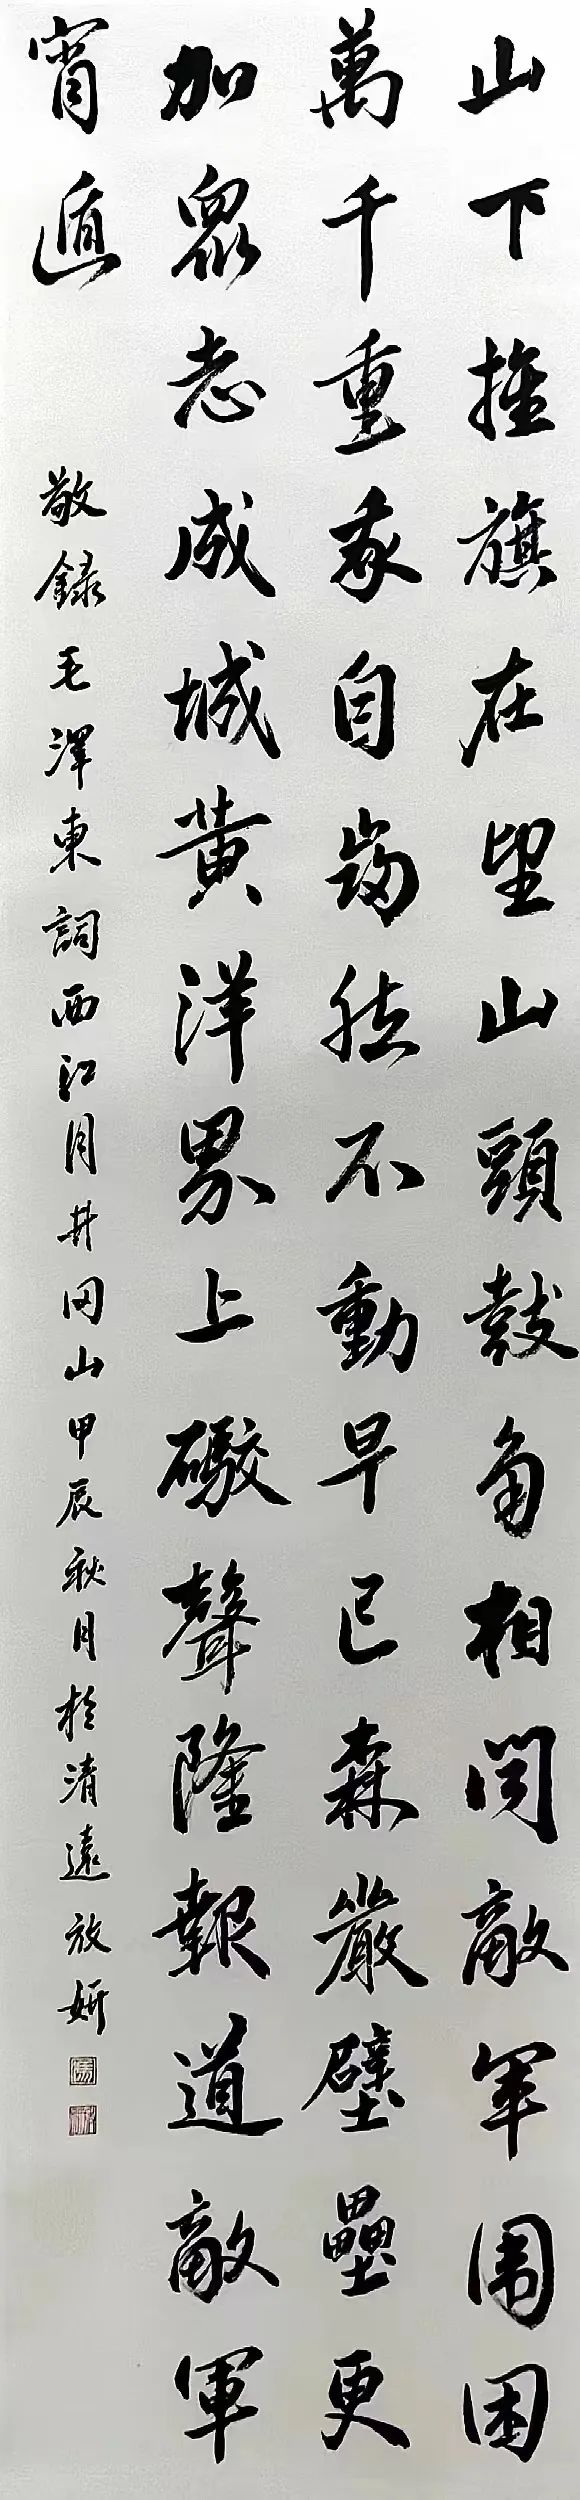 山下旌旗在望山頭鼓角相聞敵軍围困
萬千重我自岿然不動早已森嚴壁壘更
加眾志成城黄洋界上礮聲隆報道敵軍
宵遁
敬録毛澤東詞西江月井冈山甲辰秋月於清遠放妍